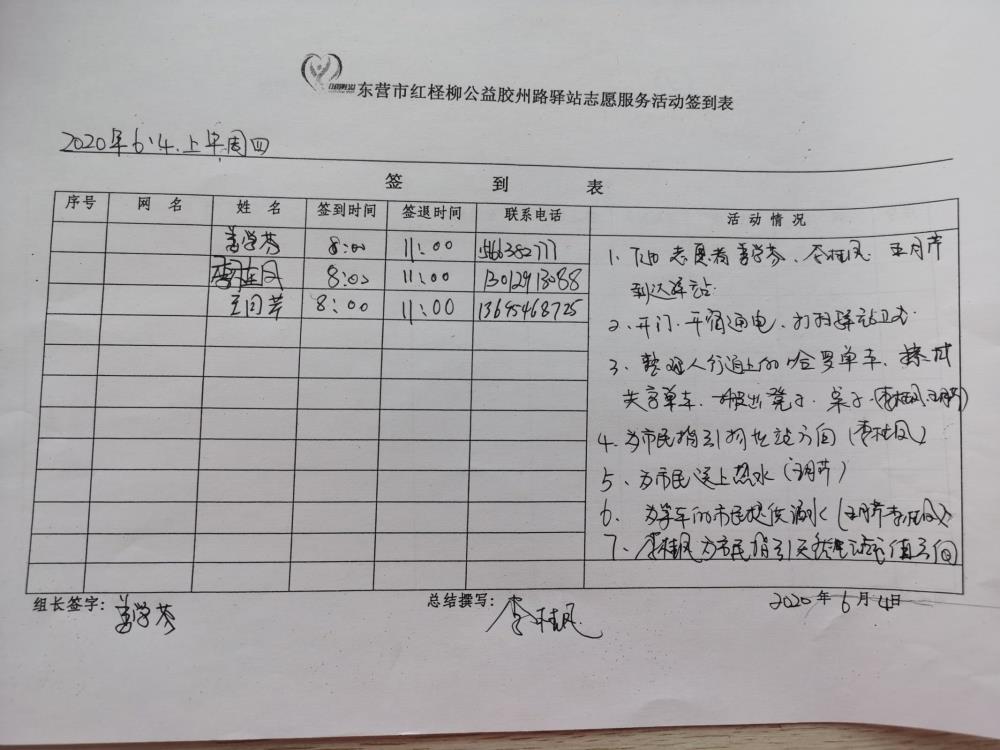 东营市红柽柳公益胶州路驿站志愿服务活动签到表
2020年6.4.上午周四
签 到 表
序号 网 名 姓 名 签到时间 签退时间 联系电话 活动情况
姜学芬 8:00 11:00
李桂凤 8:00 11:00 13012913088
王月芹 8:00 11:00 13695468725
1. 志愿者姜学芬、李桂凤 王月芹
到达驿站.
2、开门、开窗通电、打扫驿站卫生
3、整理人行道上的哈罗单车、
单车、搬出凳子、桌子(李桂凤.王月芹)
4、为市民指引 方向(李桂凤)
5、为市民送上热水(王月芹)
6、为 车的市民提供 水(王月芹李桂凤)
7、李桂凤为市民指引 方向
组长签字: 姜学芬 总结撰写: 李桂凤 2020年6月4日